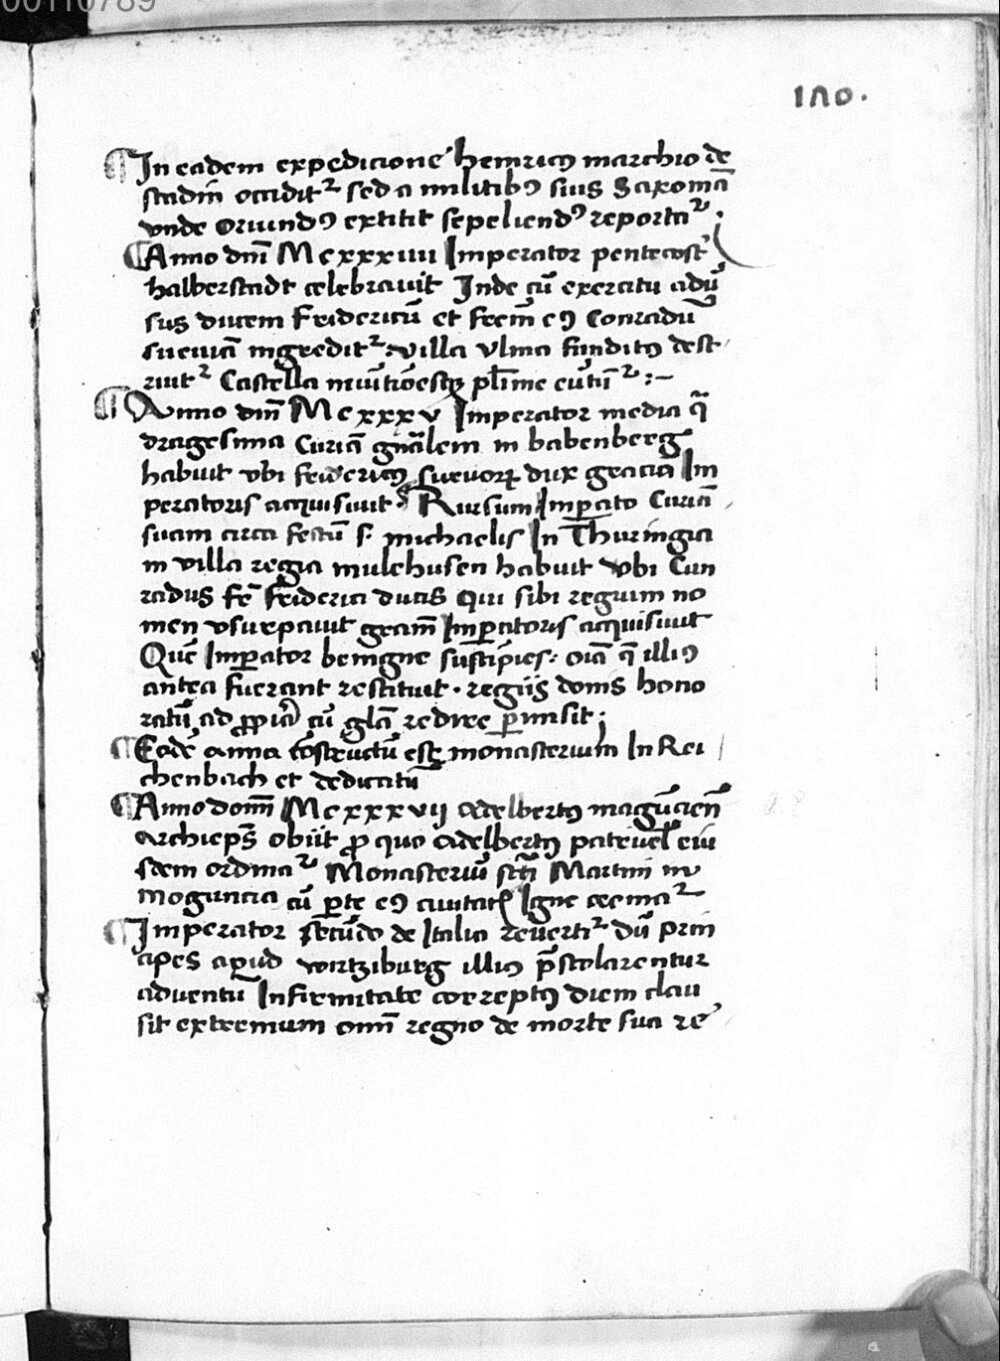 00110789
1Λ0.
¶ In eadem expedicione hemricꝯ marchio de
stadin̄ occidit᷑ sed a militibꝯ suis Saxoniā
vnde oriundꝯ extitit sepeliendꝯ reporta᷑.
¶ Anno dn̄i Mcxxxiiii Imperator pentecost̕
halberstadt celebrauit Inde cū exercitu adū
sus ducem Fridericū et frem̄ eꝯ Conradū
sueuiā ingredit᷑ : villa vlma funditꝯ dest
ruit᷑ Castella munitōesqꝫ pl̄ime eūtūt᷑ :~
¶ Anno dn̄i Mcxxxv Imperator media q̄
dragesima Curiā gn̄alem in babenberg
habuit vbi fridericꝯ sueuoꝝ dux gracia Im
peratoris acquisiuit Rursum Imꝑato Curiā
suam circa festū s. michaelis In Thuringia
in villa regia mulehusen habuit vbi Cun
radus fr̄ friderici ducis Qui sibi regium no
men vsurpauit gr̄am Imꝑatoris acquisiuit
Quē Imꝑator benigne suscipies : oīa q̄ illiꝯ
antea fuerant restituit . regiis donis hono
ratū ad ꝓpia cū gl̄a redire ꝑmisit ;
¶ Eodē anna cōstructū est monasterium In Rei
chenbach et dedicatū
¶ Anno domī Mcxxxvij Adelbertꝯ magūcien̄
archieps̄ obiit ꝓ quo Adelbertꝯ patruel̕ eiu
sdem ordina᷑ Monasteriū sct̄i Martini in
moguncia cū ꝑte eꝯ ciuitatꝭ Igne crema᷑
¶ Imperator secūdo de Italia reuerti᷑ dū prin
cipes apud wirtziburg illiꝯ p̄stolarentur
aduentū Infirmitate correptꝯ diem clau
sit extremum omī regno de morte sua re̕